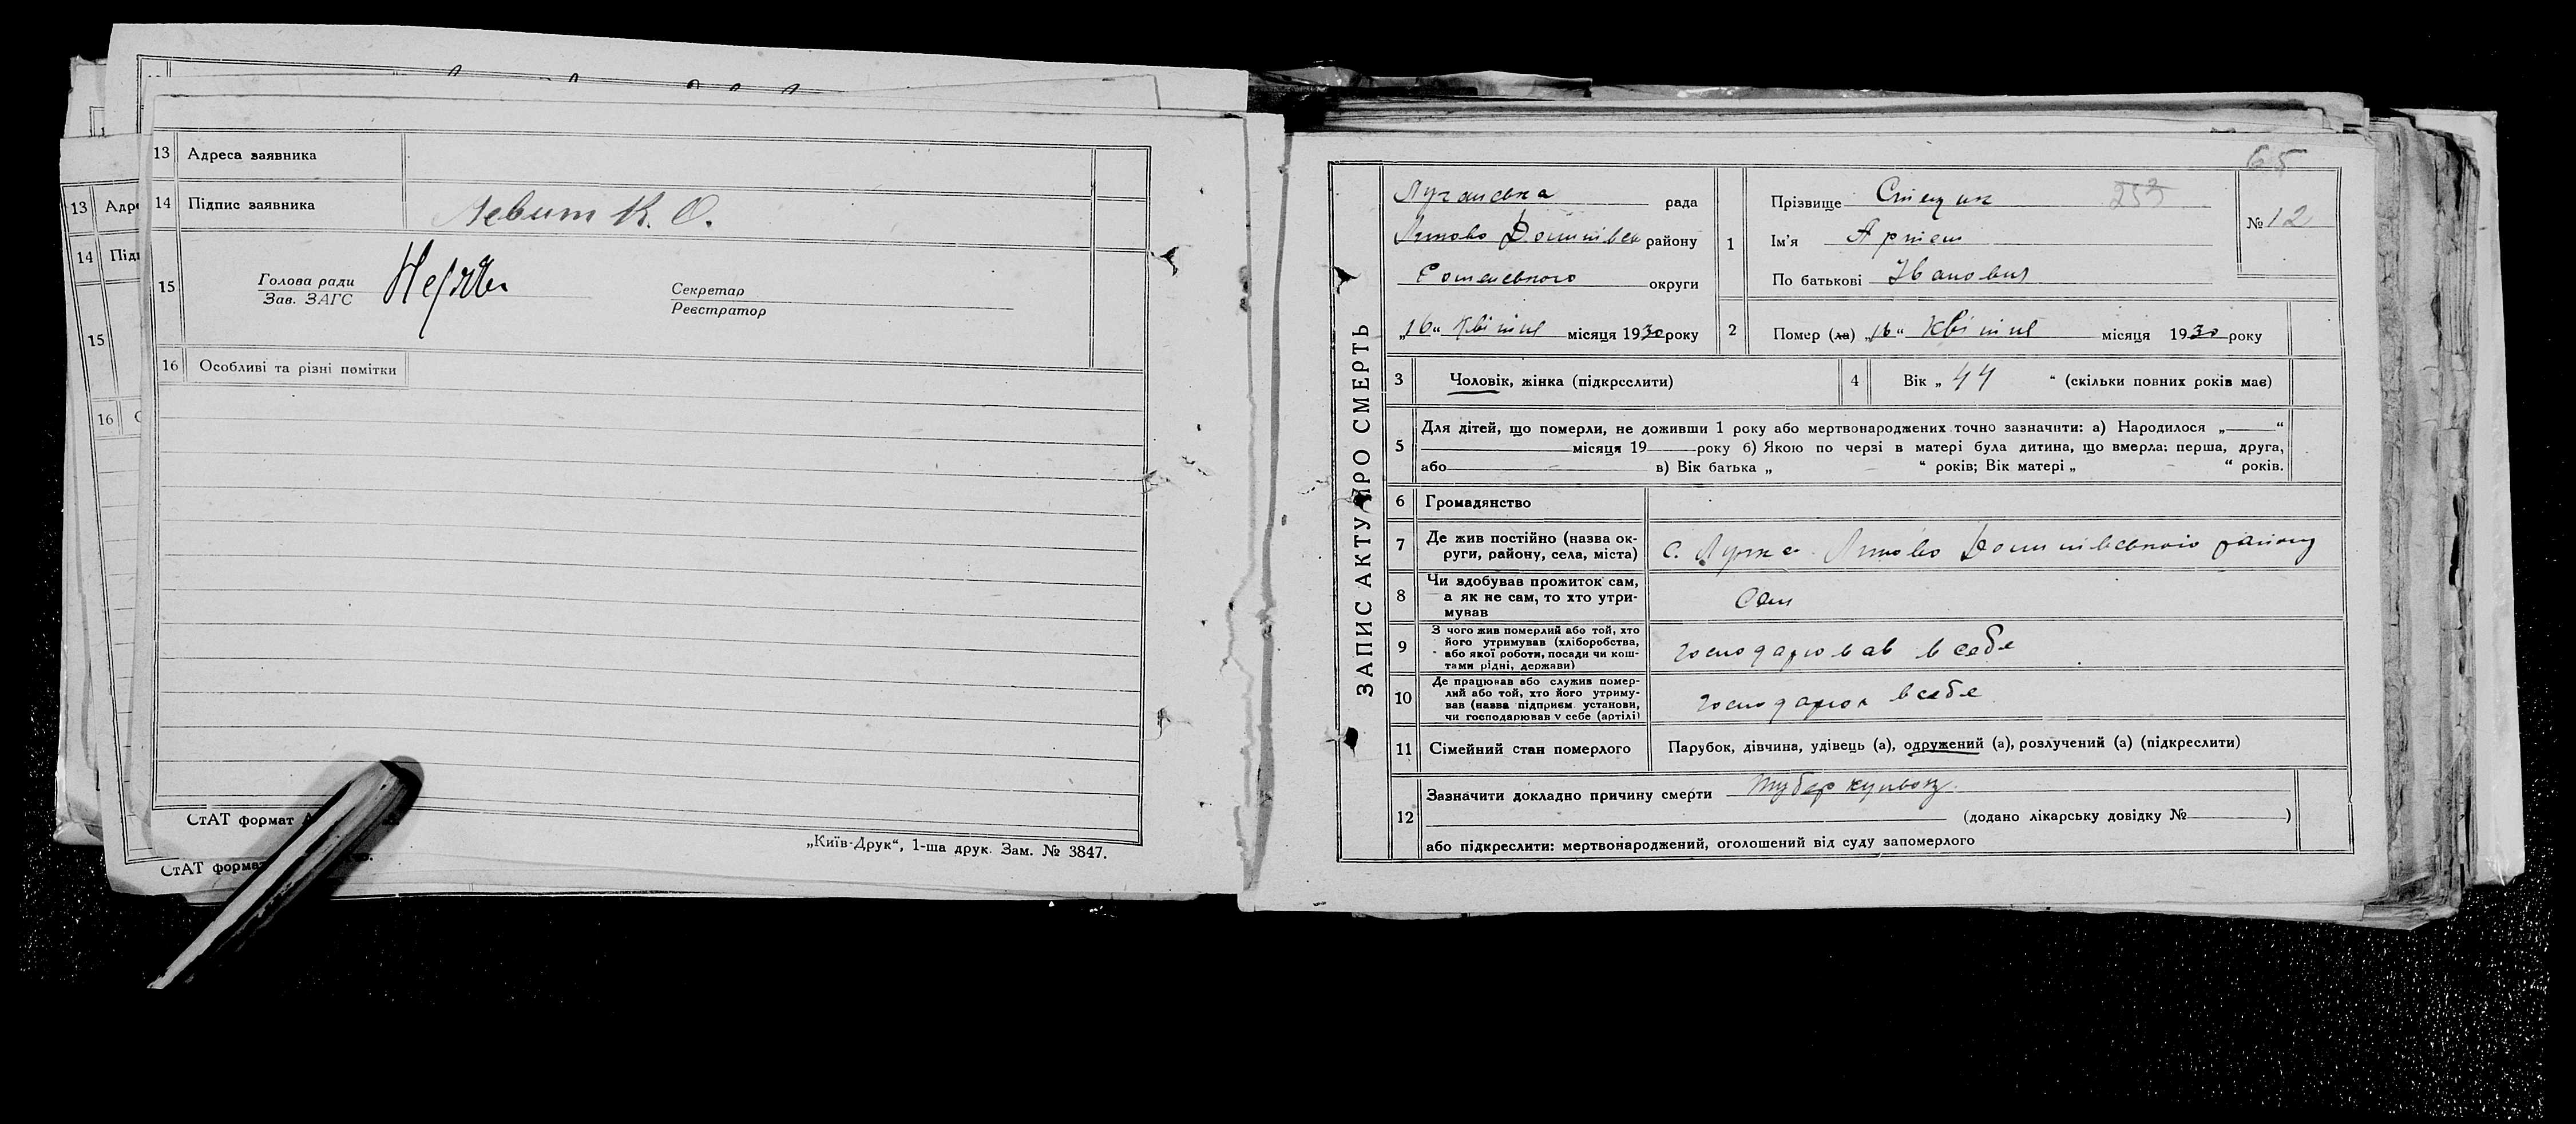 13 Адреса заявника
14 Підпис заявника Левит К. О.
15 Голова ради
Зав. ЗАГС
Секретар
Реєстратор
16 Особливі та різні помітки
СтАТ формат
„Київ-Друк“, 1-ша друк. Зам. № 3847.
13 Адре
14 Підп
15
16 О
СтАТ формат
65
ЗАПИС АКТУ ПРО СМЕРТЬ
рада
району
округи
„16“ Квітня місяця 1930 року
1 Прізвище
Ім'я Артем
По батькові Іванович
№ 12
2 Помер (ла) „16“ Квітня місяця 1930 року
3 Чоловік, жінка (підкреслити)
4 Вік „ 44 “ (скільки повних років має)
5 Для дітей, що померли, не доживши 1 року або мертвонароджених точно зазначити: а) Народилося „ “
місяця 19 року б) Якою по черзі в матері була дитина, що вмерла: перша, друга,
або в) Вік батька „ “ років; Вік матері „ “ років.
6 Громадянство
7 Де жив постійно (назва ок-
руги, району, села, міста) с. району
8 Чи здобував прожиток сам,
а як не сам, то хто утри-
мував Сам
9 З чого жив померлий або той, хто
його утримував (хліборобства,
або якої роботи, посади чи кош-
тами рідні, держави) господарював в себе
10 Де працював або служив помер-
лий або той, хто його утриму-
вав (назва підприєм. установи,
чи господарював у себе (артілі) в себе
11 Сімейний стан померлого Парубок, дівчина, удівець (а), одружений (а), розлучений (а) (підкреслити)
12 Зазначити докладно причину смерти туберкульоз
(додано лікарську довідку № )
або підкреслити: мертвонароджений, оголошений від суду запомерлого